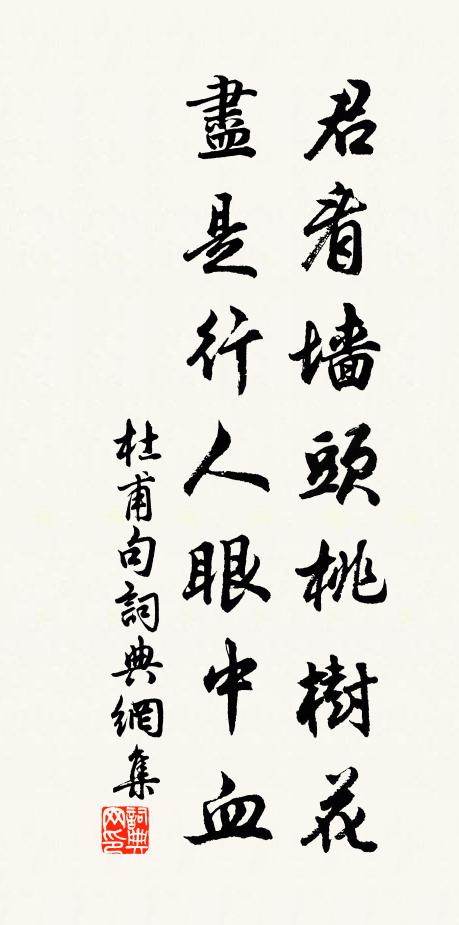 君看墙頭桃樹花
盡是行人眼中血
杜甫句詞典網集
詞典網印